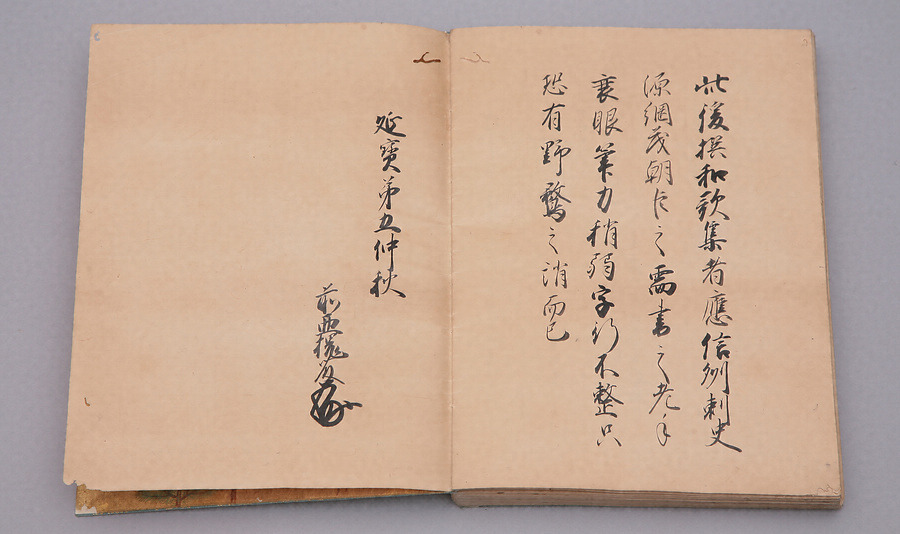 此後撰和歌集者應信州刺史
源綱茂朝臣之需書之老手
衰眼筆力稍弱字行不整只
恐有野鶩之誚而已
延寶第五仲秋
前亜槐